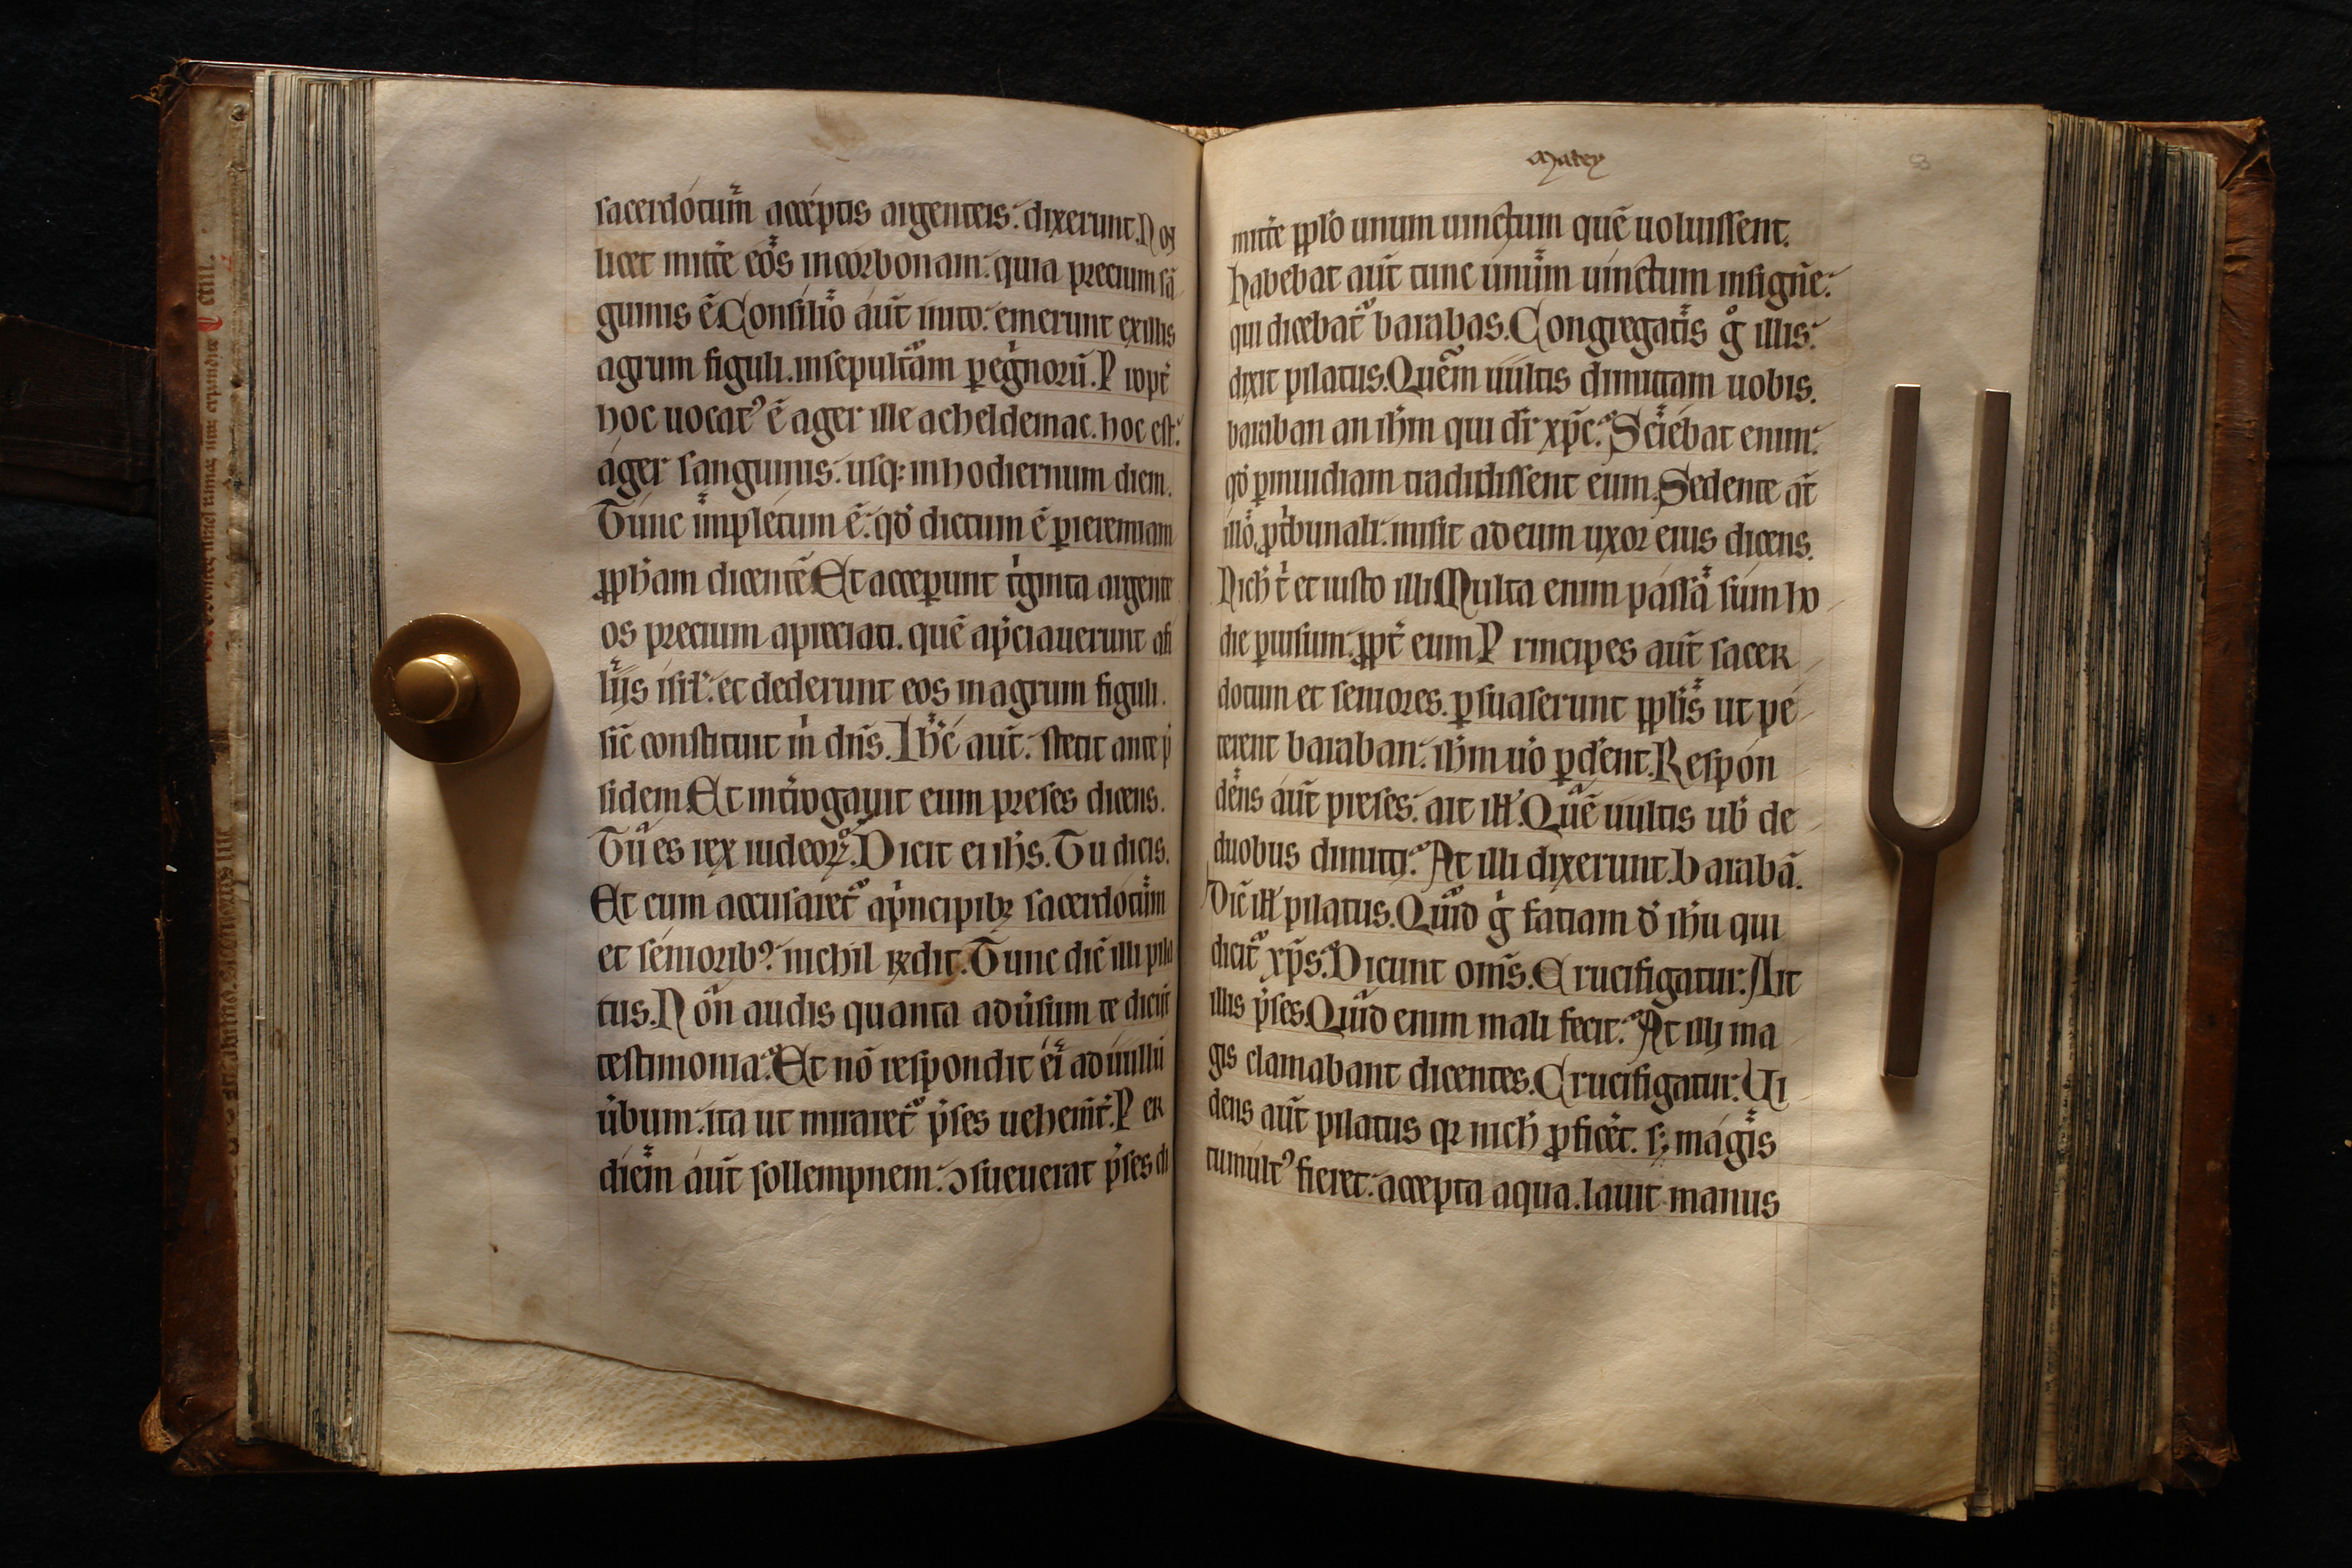 sacerdotum̄ acceptis argenteis. dixerunt. Noɳ
licet mitte᷑ eos incorbonam: quia precium sā
guinis ē. Consilio aut̄ inito: emerunt exillis
agrum figuli. insepultām pegͥnorū. Propt᷑
hoc uocatꝰ ē ager ille acheldemac. hoc est:
ager sanguinis. usq; inhodiernum diem.
Tunc impletum ē. qd̓ dictum ē ꝑieremiam
ꝓph̄am dicentē. Et acceꝑunt tͥginta argente
os precium apreciati. quē ap̄ciauerunt afi
lijs isrl̓. et dederunt eos inagrum figuli.
sic̄ constituit m̍ dn̄s. Ih̄c aut̄. stetit ante p̄
sidem. Et int᷑rogauit eum preses dicens.
Tu es rex iudeoꝝ. Dicit ei ih̄s. Tu dicis.
Et cum accusaret᷑ ap̍ncipibꝫ sacerdotum
et senioribꝰ. nichil rn̄dit. Tunc dic̄ illi pila
tus. Non audis quanta adu᷑sum te dicūt
testimonia. Et nō respondit ei adullū
u᷑bum: ita ut miraret᷑ p̄ses uehem̄t᷑. Per
diem aut̄ sollempnem: ꝯsueuerat p̄ses di
Matey
53
mitte᷑ ppl̓o unum uinctum quē uoluissent.
habebat aut̄ tunc unum uinctum insignē:
qui dicebat᷑ barabas. Congregatis gͦ illis:
dixit pilatus. Quem uultis dimittam uobis.
baraban an ih̄m qui dr̄ xp̄c. Sciebat enim:
qd̓ ꝑinuidiam tradidissent eum. Sedente at̄
illo ꝓt᷑bunali: misit adeum uxor eius dicens.
Nich̓ t̍ et iusto illi. Multa enim passa sum ho
die ꝑuisum. ꝓpt᷑ eum. Principes aut̄ sacer
dotum et seniores. ꝑsuaserunt ppl̓is ut pe
terent baraban: ih̄m uͦ ꝑd᷑ent. Respon
dens aut̄ preses: ait ill̓. Quē uultis ub̓ de
duobus dimitti. At illi dixerunt. barabā.
Dic̄ ill̓ pilatus. Quid gͦ fatiam d̓ ih̄u qui
dicit᷑ xp̄s. Dicunt om̄s. Crucifigatur. Ait
illis p̄ses. Quid enim mali fecit. At illi ma
gis clamabant dicentes. Crucifigatur. Ui
dens aut̄ pilatus qꝛ nich̓ ꝓficet᷑. sꝫ magis
tumultꝰ fieret: accepta aqua. lauit manus